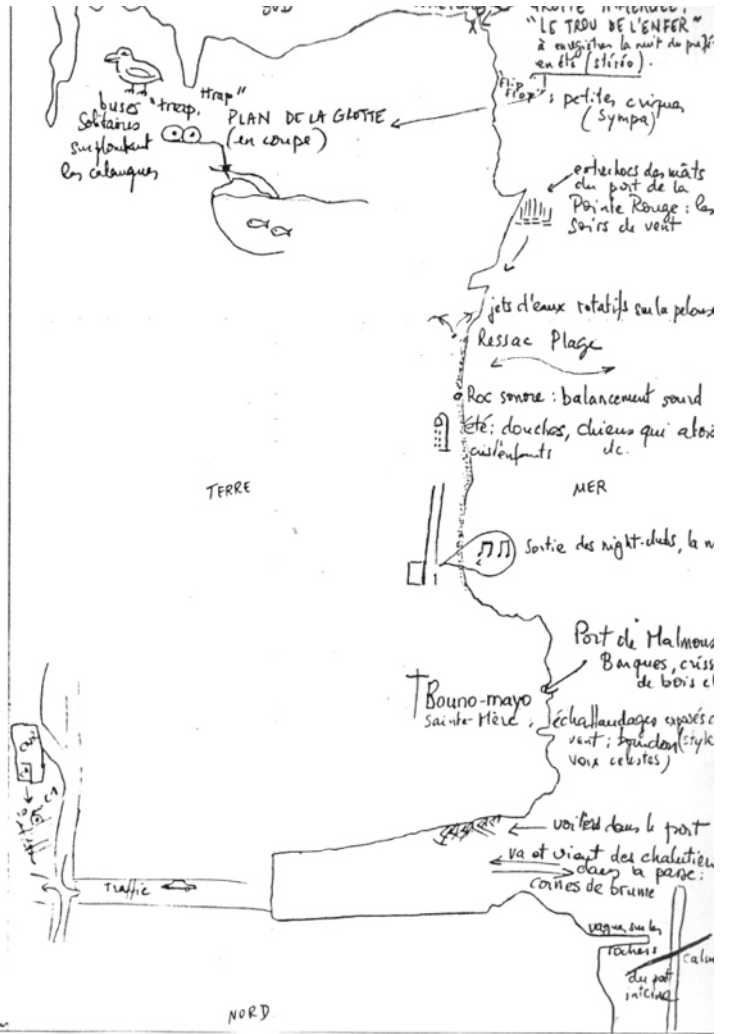 SUD
"LE TROU DE L'ENFER"
à enregistrer la nuit de préfé
en été (stéréo).
"flip
flop" : petites criques
(Sympa)
buses "treap, ttrap"
Solitaires
surplombant
les calanques
PLAN DE LA GROTTE
(en coupe)
entrechocs des mâts
du port de la
Pointe Rouge : les
soirs de vent
jets d'eaux rotatifs sur la pelous
Ressac Plage
Roc sonore : balancement sourd
été : douches, chiens qui aboi
cris d'enfants etc.
TERRE
MER
Sortie des night-clubs, la n
Port de Malmous
Barques, criss
de bois et
Bouno-mayo
Sainte-Mère :
échaffaudages exposés a
vent ; bourdon (style
voix celestes)
voiliers dans le port
va et vient des chalutier
dans la passe :
cornes de brume
Traffic
vagues sur les
rochers
calm
du port
NORD